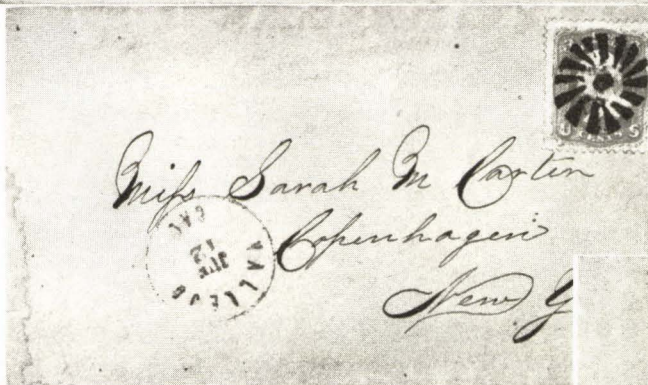 Miss Sarah M Carter
Copenhagen
New Y
VALLEJO
CAL
12
U S